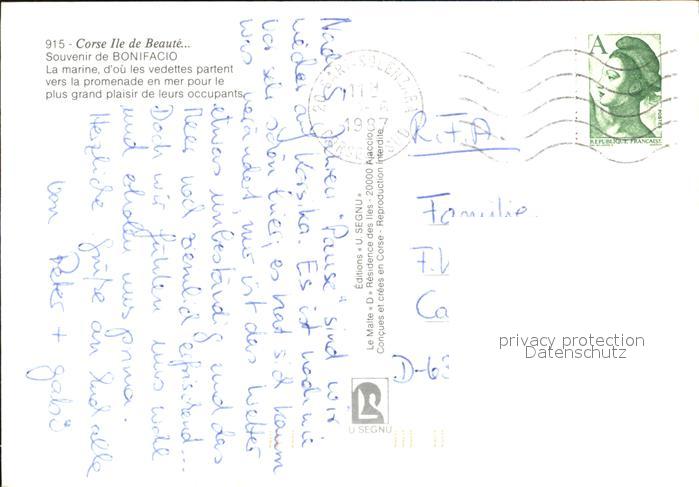 915 - Corse Ile de Beauté...
Souvenir de BONIFACIO
La marine, d'où les vedettes partent
vers la promenade en mer pour le
plus grand plaisir de leurs occupants.
Nach 5 Jahren "Pause" sind wir
wieder auf Korsika. Es ist nach wie
vor sehr schön hier, es hat sich kaum
was verändert, nur ist das Wetter
etwas unbeständig und das
Meer noch ziemlich erfrischend...
Doch wir fühlen uns wohl
und erholen uns prima.
Herzliche Grüße an Euch alle
von Peter + Gabi
Éditions « U. SEGNU »
Le Malte « D » Résidence des Iles - 20000 Ajaccio
Conçues et crées en Corse - Reproduction interdite
U SEGNU
A
POSTES
REPUBLIQUE FRANÇAISE
R.F.A.
Familie
Ca
D-63
privacy protection
Datenschutz